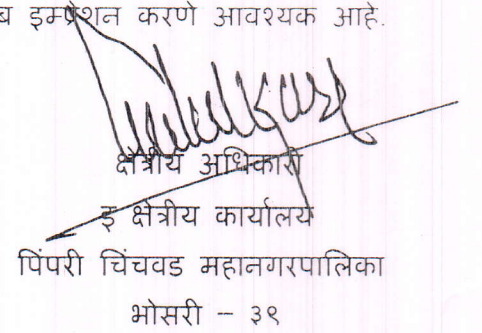 ब इम्प्रेशन करणे आवश्यक आहे.
क्षेत्रीय अधिकारी
इ क्षेत्रीय कार्यालय
पिंपरी चिंचवड महानगरपालिका
भोसरी – ३९